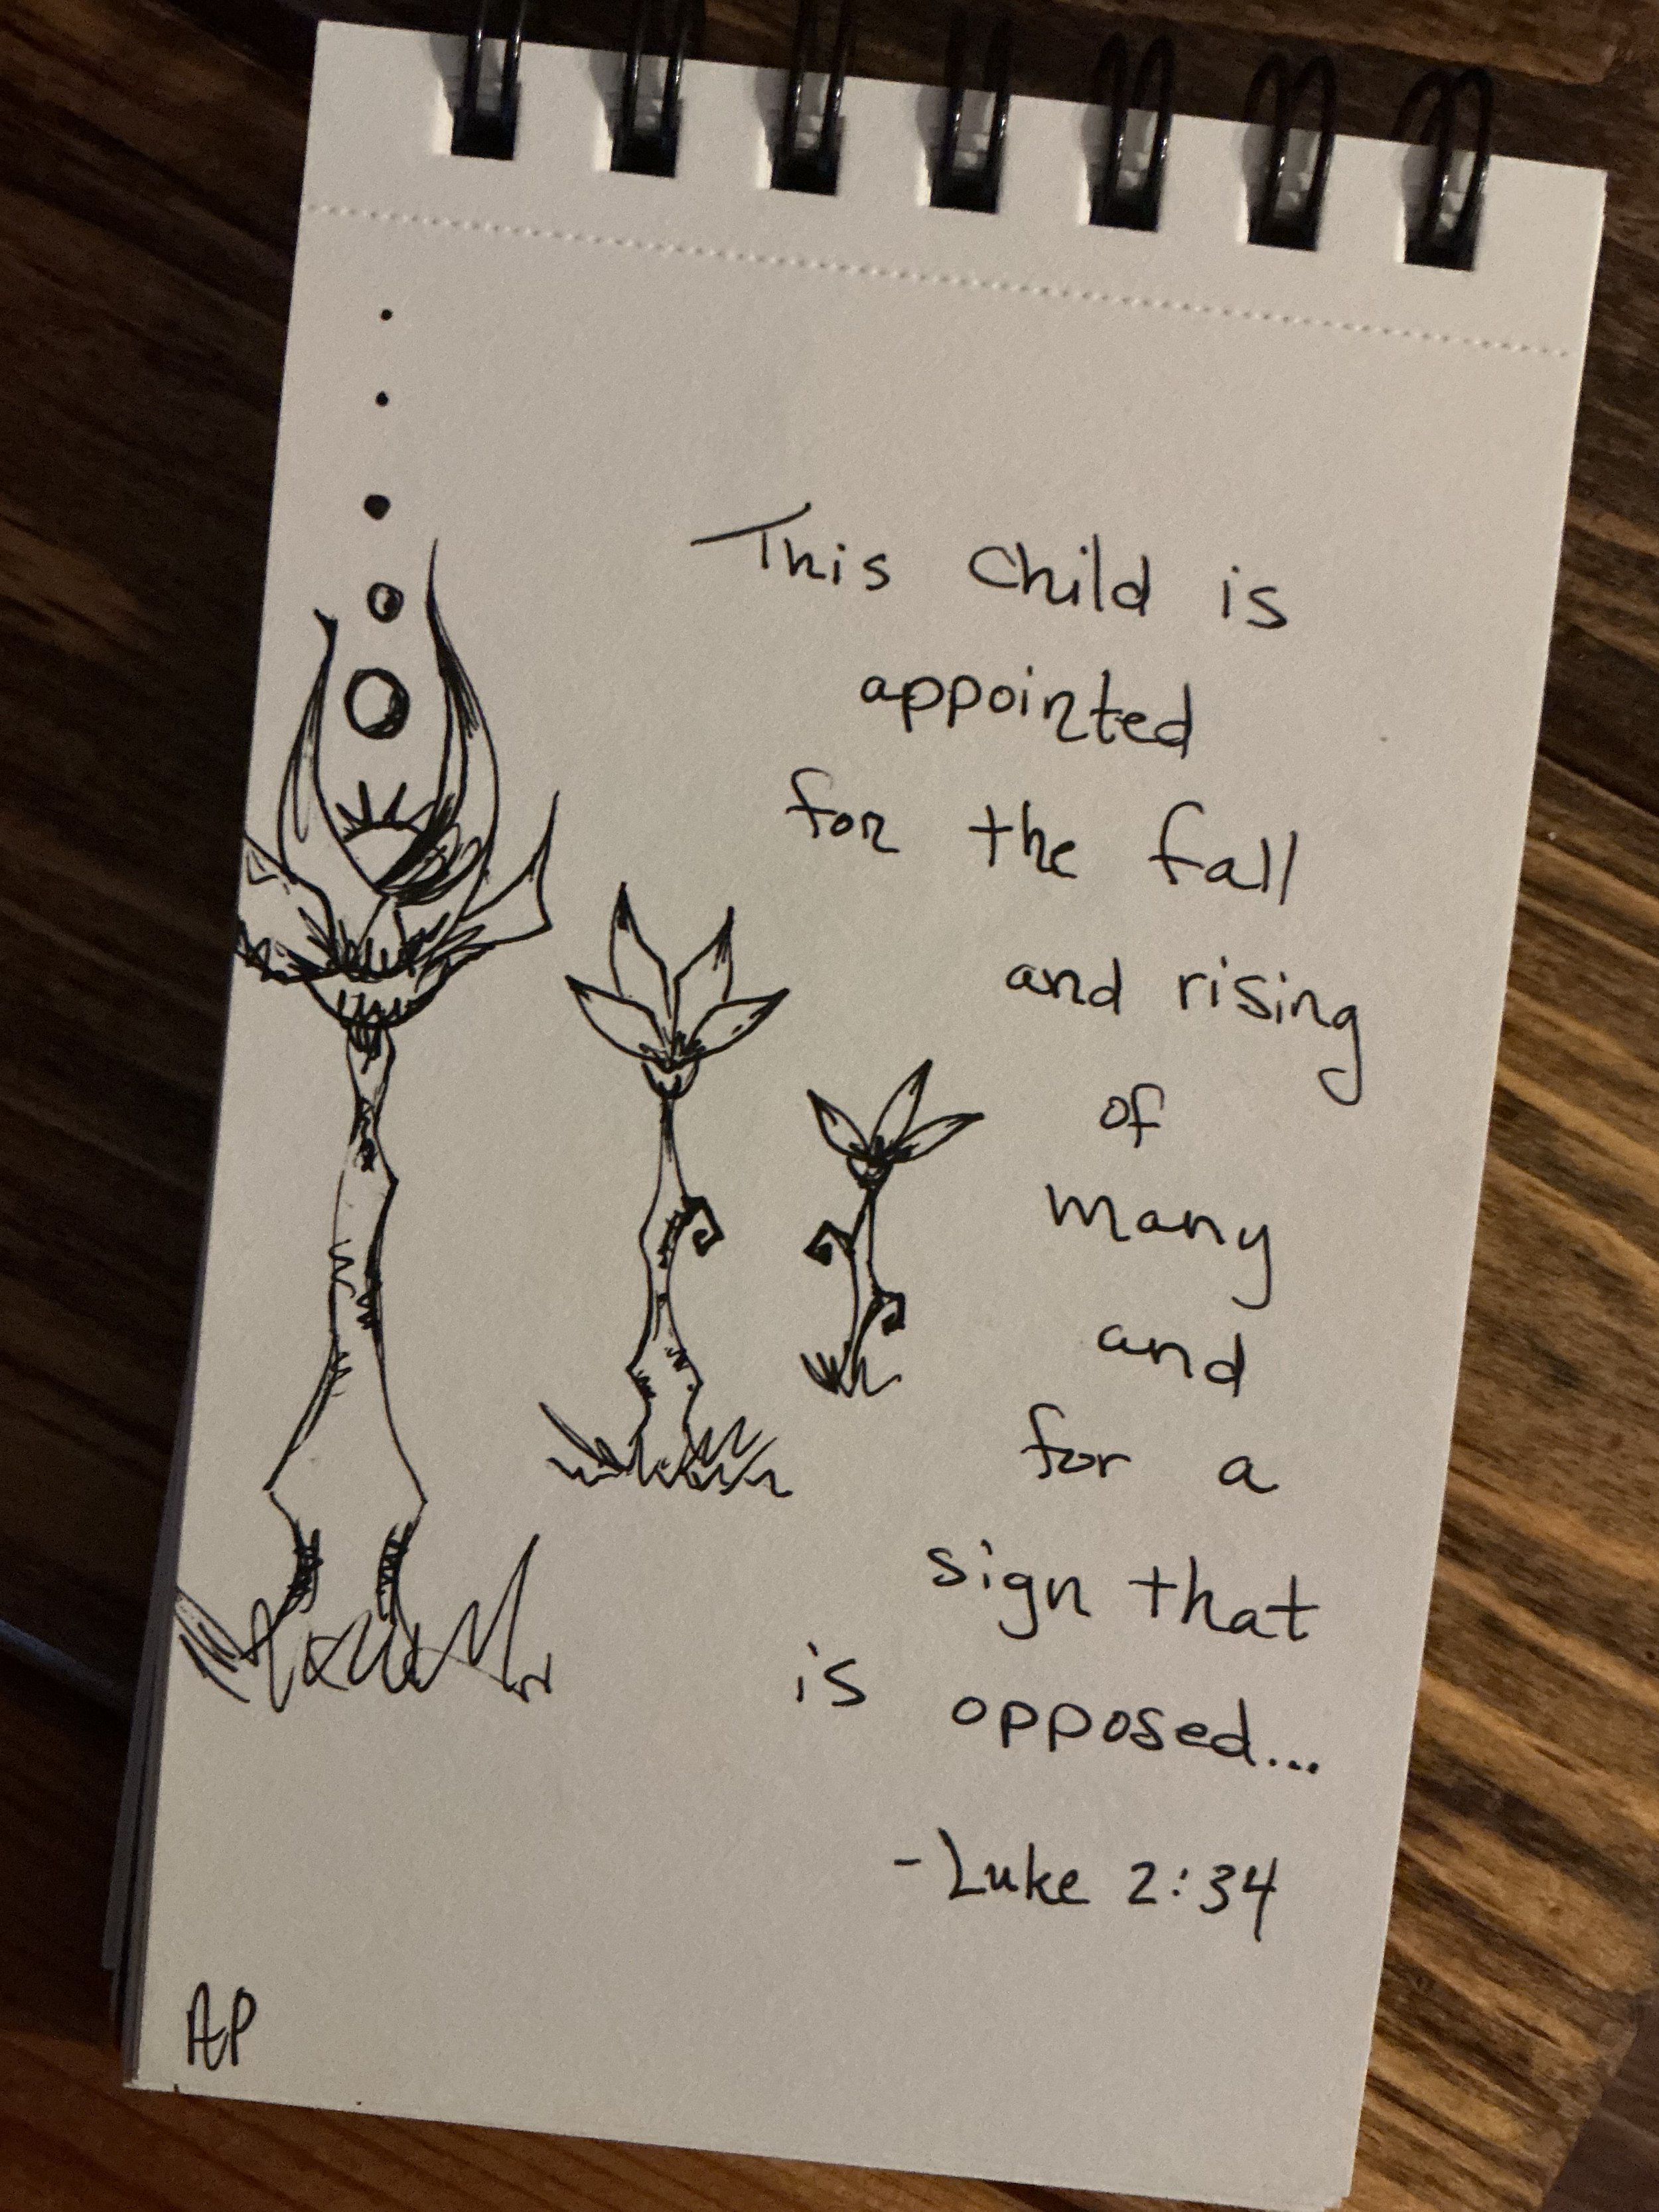 This Child is
appointed
for the fall
and rising
of
many
and
for a
sign that
is opposed...
-Luke 2:34
AP